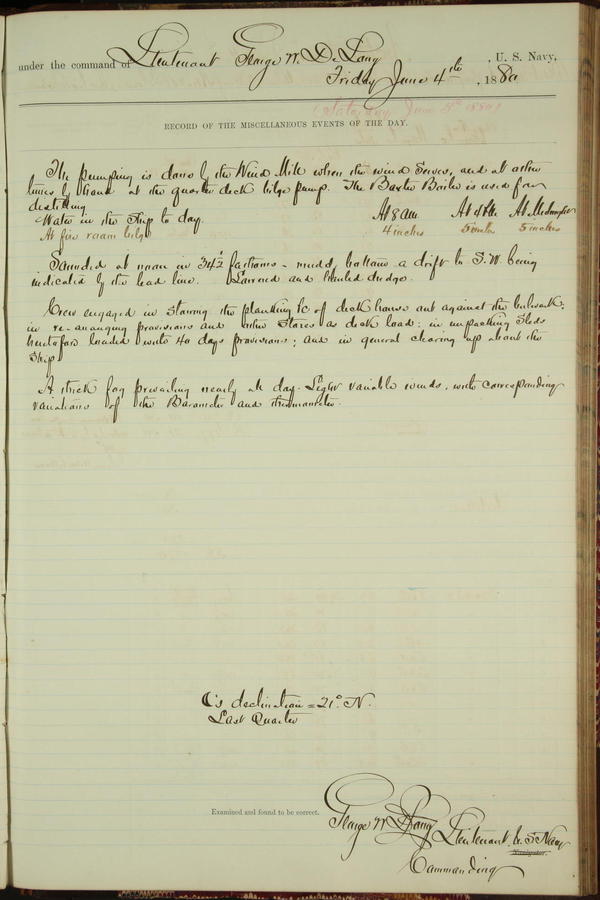 under the command of Lieutenant George W. De Long, U. S. Navy,
Friday June 4th, 1880
(Saturday, June 5th 1880)
RECORD OF THE MISCELLANEOUS EVENTS OF THE DAY.
The pumping is done by the Wind Mill when the wind serves, and at other
times by hand at the quarter deck bilge pump. The Baxter Boiler is used for
distilling
Water in the Ship to day. At 8 am At 4 P.M. At Midnight
At fire room bilge 4 inches 5 inches 5 inches
Sounded at noon in 34½ fathoms - mudd, bottom a drift to S.W. being
indicated by the lead line. Lowered and hauled dredge.
Crew engaged in stowing the planking &c of deck house out against the bulwark;
in re-arranging provisions and other stores as deck load; in unpacking Sleds
heretofore loaded with 40 days provisions; and in general clearing up about the
Ship
A thick fog prevailing nearly all day. Light variable winds, with corresponding
variations of the Barometer and thermometer.
☾'s declination = 21° N.
Last Quarter
Examined and found to be correct.
George W. De Long Lieutenant U.S Navy
Navigator.
Commanding